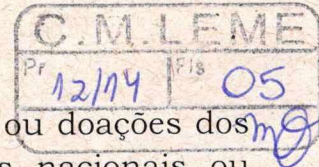 C.M.LEME
Pr Fls
12/14 05
ou doações dos
nacionais ou